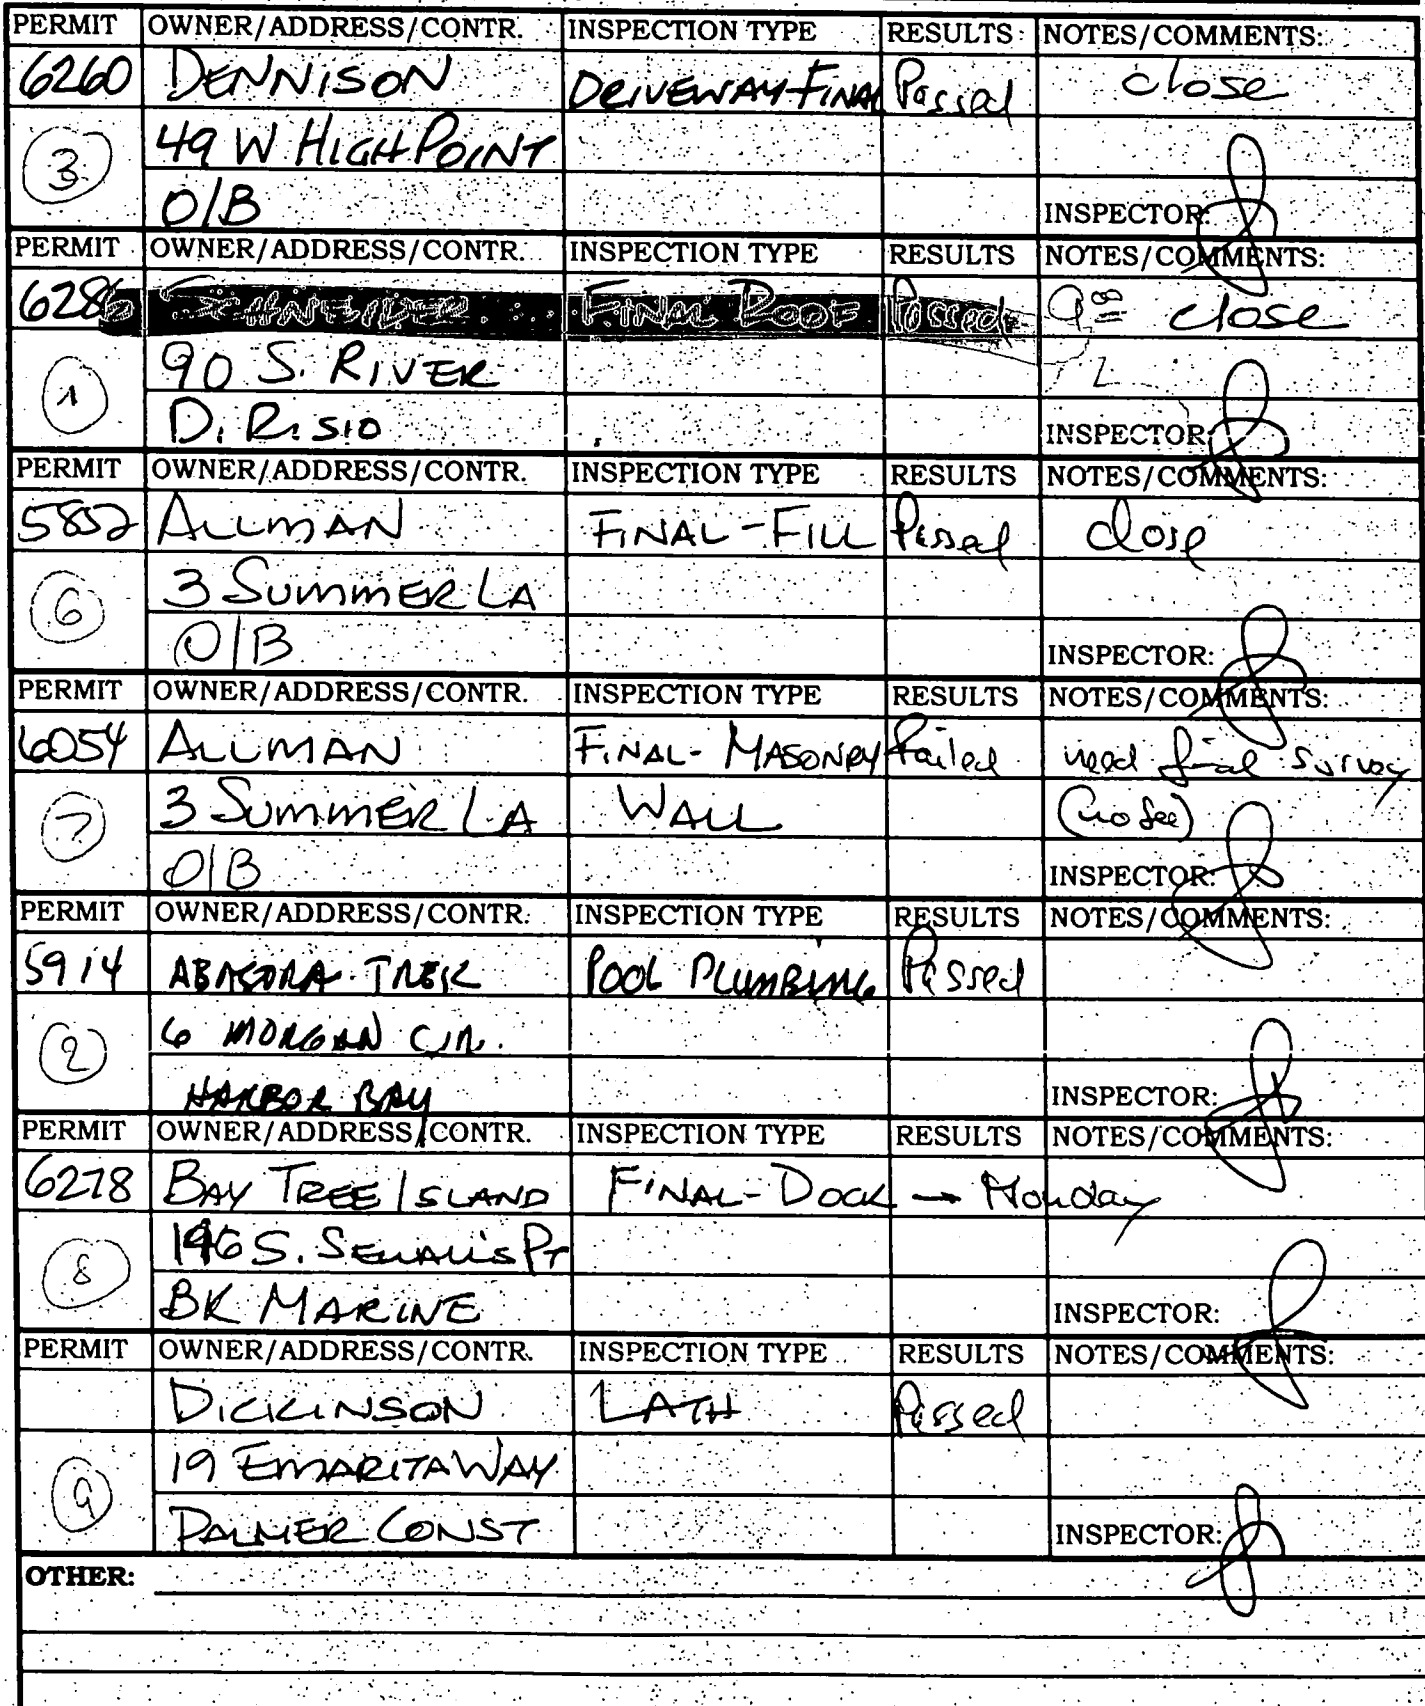 PERMIT OWNER/ADDRESS/CONTR. INSPECTION TYPE RESULTS NOTES/COMMENTS:
6260 DENNISON DRIVEWAY-FINAL Passed close
3 49 W HIGH POINT
O/B INSPECTOR:
PERMIT OWNER/ADDRESS/CONTR. INSPECTION TYPE RESULTS NOTES/COMMENTS:
6286 FINAL ROOF Passed 9:00 close
1 90 S. RIVER
DiRisio INSPECTOR:
PERMIT OWNER/ADDRESS/CONTR. INSPECTION TYPE RESULTS NOTES/COMMENTS:
5852 ALLMAN FINAL-FILL Passed close
6 3 SUMMER LA
O/B INSPECTOR:
PERMIT OWNER/ADDRESS/CONTR. INSPECTION TYPE RESULTS NOTES/COMMENTS:
6054 ALLMAN FINAL-MASONRY Failed need final survey
7 3 SUMMER LA WALL (no fee)
O/B INSPECTOR:
PERMIT OWNER/ADDRESS/CONTR. INSPECTION TYPE RESULTS NOTES/COMMENTS:
5914 POOL PLUMBING Passed
2 6 MORGAN CIR.
HARBOR BAY INSPECTOR:
PERMIT OWNER/ADDRESS/CONTR. INSPECTION TYPE RESULTS NOTES/COMMENTS:
6278 BAY TREE ISLAND FINAL-DOCK → Monday
8 S. SEWALL'S PT
BK MARINE INSPECTOR:
PERMIT OWNER/ADDRESS/CONTR. INSPECTION TYPE RESULTS NOTES/COMMENTS:
DICKINSON LATH Passed
9 19 EMARITA WAY
PALMER CONST INSPECTOR:
OTHER: